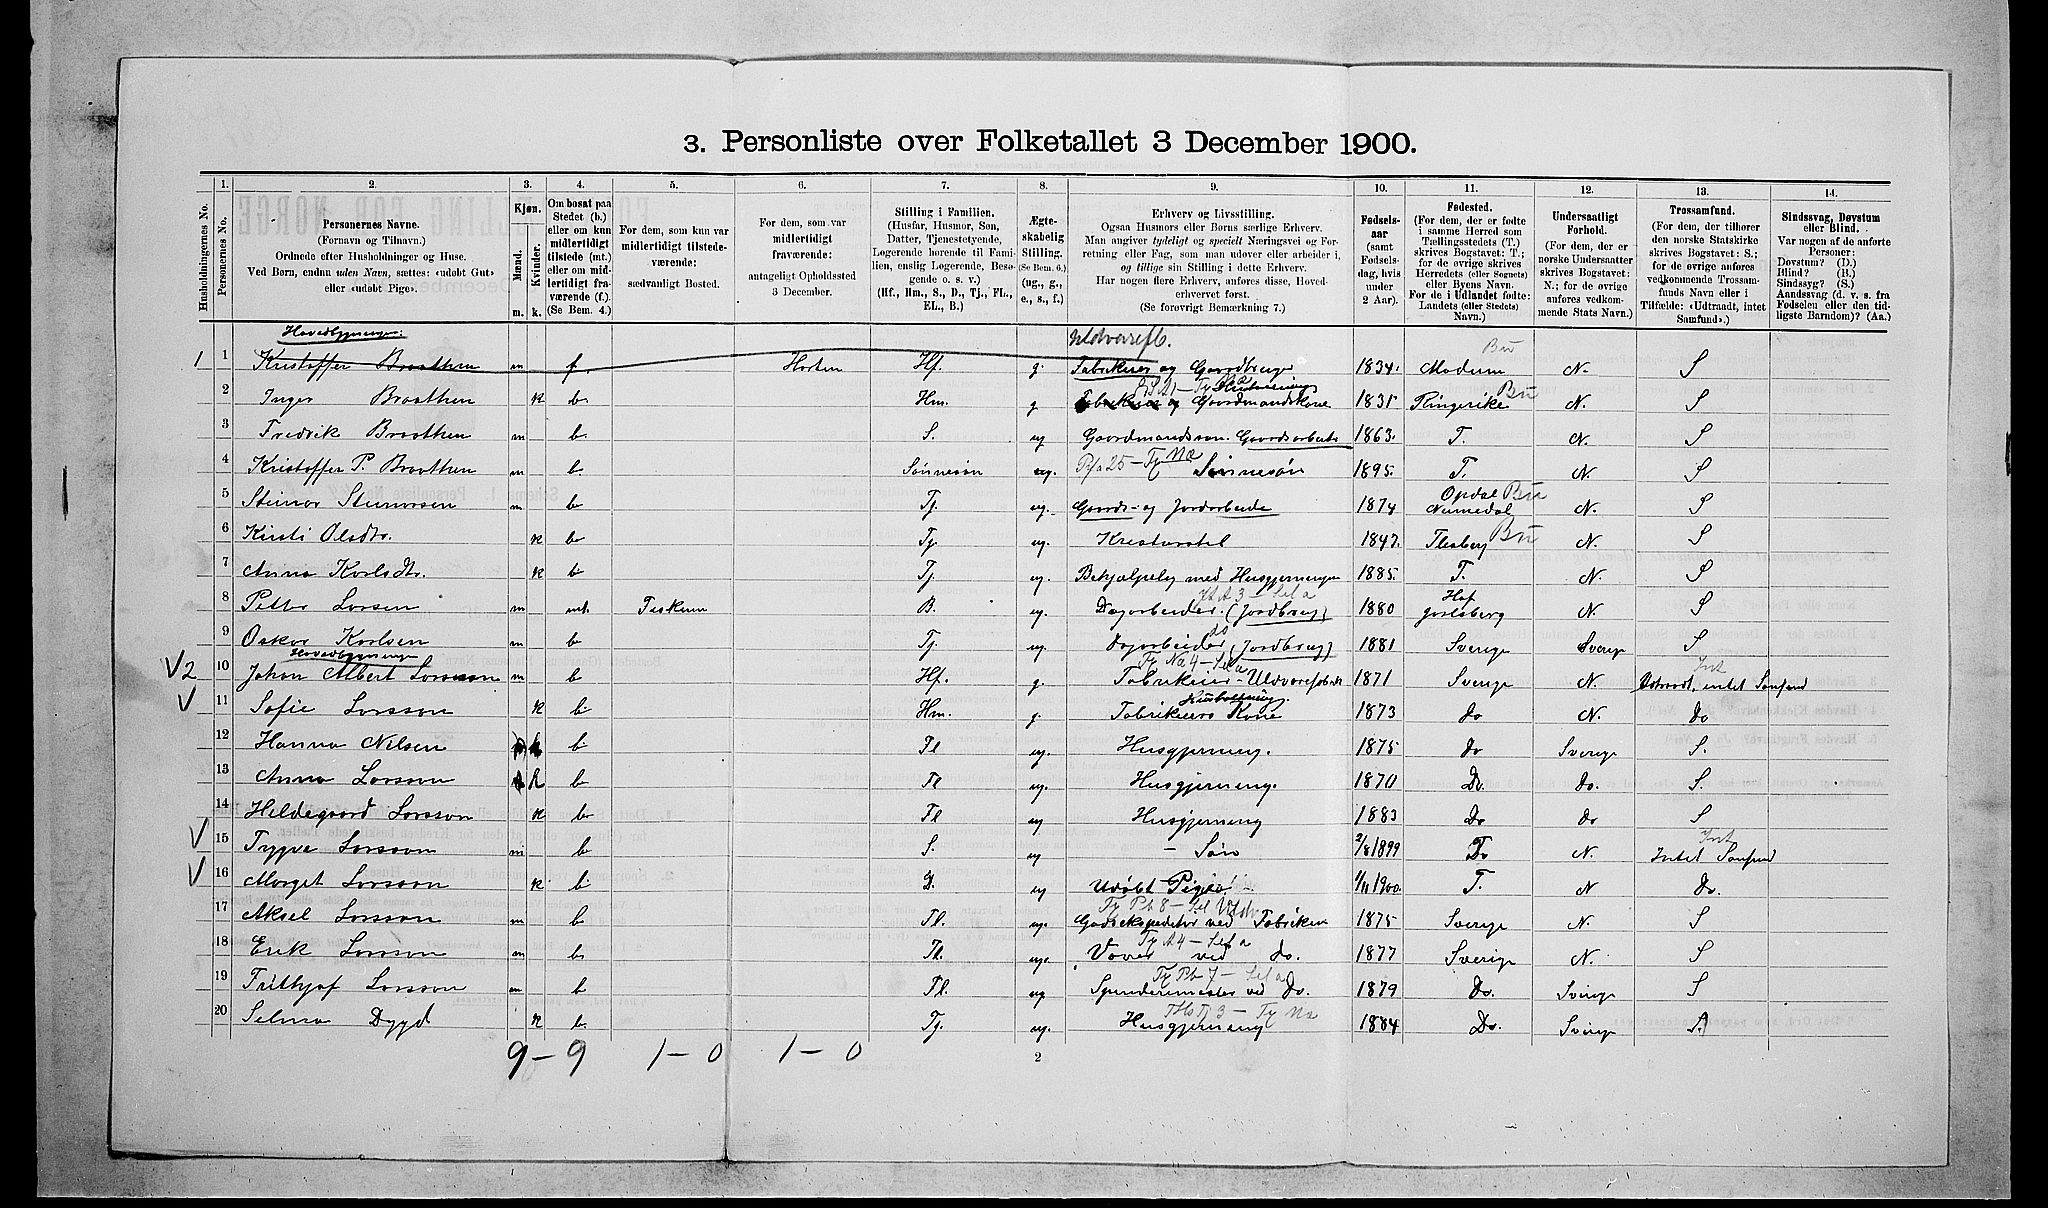 3. Personliste over Folketallet 3 December 1900.
Husholdningernes No.
1. Personernes No.
2. Personernes Navne. (Fornavn og Tilnavn.) Ordnede efter Husholdninger og Huse. Ved Børn, endnu uden Navn, sættes: «udøbt Gut» eller «udøbt Pige».
3. Kjøn. Mænd. m. Kvinder. k.
4. Om bosat paa Stedet (b.) eller om kun midlertidigt tilstede (mt.) eller om midlertidigt fraværende (f.). (Se Bem. 4.)
5. For dem, som kun var midlertidigt tilstedeværende: sædvanligt Bosted.
6. For dem, som var midlertidigt fraværende: antageligt Opholdssted 3 December.
7. Stilling i Familien. (Husfar, Husmor, Søn, Datter, Tjenestetyende, Logerende hørende til Familien, enslig Logerende, Besøgende o. s. v.) (Hf., Hm., S., D., Tj., FL., EL., B.)
8. Ægteskabelig Stilling. (Se Bem. 6.) (ug., g., e., s., f.)
9. Erhverv og Livsstilling. Ogsaa Husmors eller Børns særlige Erhverv. Man angiver tydeligt og specielt Næringsvei og Forretning eller Fag, som man udover eller arbeider i, og tillige sin Stilling i dette Erhverv. Har nogen flere Erhverv, anføres disse, Hovederhvervet først. (Se forøvrigt Bemærkning 7.)
10. Fødselsaar (samt Fødselsdag, hvis under 2 Aar).
11. Fødested. (For dem, der er fødte i samme Herred som Tællingsstedets (T.) skrives Bogstavet: T.; for de øvrige skrives Herredets (eller Sognets) eller Byens Navn. For de i Udlandet fødte: Landets (eller Stedets) Navn.)
12. Undersaatligt Forhold. (For dem, der er norske Undersaatter skrives Bogstavet: N.; for de øvrige anføres vedkommende Stats Navn.)
13. Trossamfund. (For dem, der tilhører den norske Statskirke skrives Bogstavet: S.; for de øvrige anføres vedkommende Trossamfunds Navn eller i Tilfælde: «Udtraadt, intet Samfund».)
14. Sindssvag, Døvstum eller Blind. Var nogen af de anførte Personer: Døvstum? (D.) Blind? (B.) Sindssyg? (S.) Aandssvag (d. v. s. fra Fødselen eller den tidligste Barndom)? (Aa.)
Hovedbygningen:
1 1 Kristoffer Braathen m f. Horten Hf. g. Fabrikeier og Gaardbruger 1834. Modum Bu N. S
2 Inger Braathen k b. Hm. g Gaardmandskone 1835 Ringerike Bu N. S
3 Fredrik Braathen m b. S. ug Gaardmandssøn. Gaardsarbeide 1863. T. N. S
4 Kristoffer P. Braathen m b. Sønnesøn ug. Sønnesøn 1895. T. N. S
5 Steinar Steinarsen m b Tj. ug. Gaards- og Jordarbeide 1874 Opdal Numedal Bu N. S
6 Kirsti Olsdtr. k b Tj. ug. Kreaturstel 1847. Flesberg Bu N. S
7 Anna Karlsdtr. k b Tj. ug. Behjælpelig med Husgjerningen 1885. T. N. S
8 Petter Larsen m mt. Fiskum B. ug. Dagarbeider. (Jordbrug) 1880 Hof Jarlsberg N. S
9 Oskar Karlsen m b Tj. ug. Dagarbeider (Jordbrug) 1881 Sverige Sverige S
Hovedbygningen
V 2 10 Johan Albert Larsson m b Hf. g. Fabrikeier - Uldvarefabrik 1871 Sverige N. Udtraadt, intet Samfund Int
V 11 Sofie Larsson k b Hm. g. Husholdning. Fabrikeiers Kone 1873 do N. do
12 Hanna Nilsen k b Fl ug. Husgjerning. 1875 do Sverige S.
13 Anna Larsson k b Fl ug. Husgjerning. 1870 Do. do. S.
14 Hildegaard Larsson k b Fl ug Husgjerning 1883 Do do S
V 15 Trygve Larsson m b S. ug - Søn 2/8 1899 T. N. Intet Samfund Int
V 16 Marget Larsson k b D. ug Udøbt Pige 1/11 1900. T. N do.
17 Aksel Larsson m b Fl. ug. Godsekspeditør ved Fabriken 1875 Sverige N. S
18 Erik Larsson m b. Fl. ug. Væver ved do. 1877 Sverige N. S
19 Frithjof Larsson m b Fl. ug Spinderimester ved Do. 1879 Do. Sverige S
20 Selma Dygd k b. Tj. ug. Husgjerning 1884 Do. Sverige S.
9 - 9 1 - 0 1 - 0
2